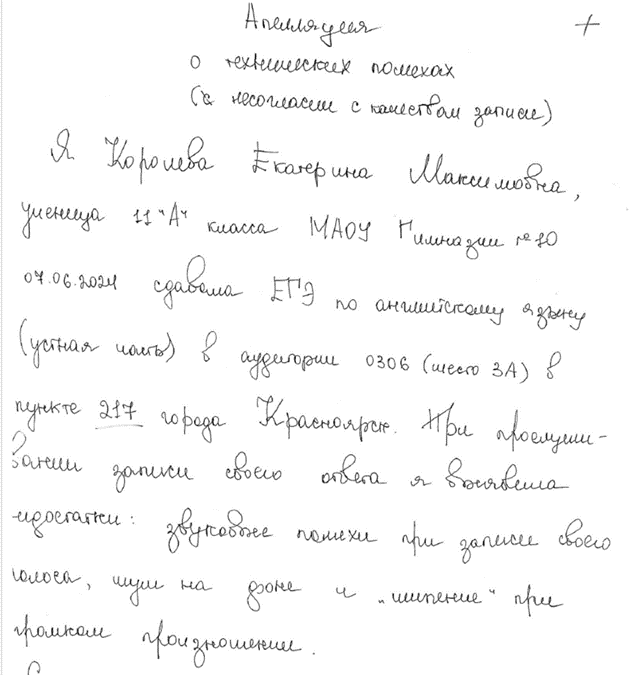 Апелляция +
о технических помехах
(о несогласии с качеством записи)
Я Королева Екатерина Максимовна,
ученица 11 "А" класса МАОУ Гимназии № 10
07.06.2024 сдавала ЕГЭ по английскому языку
(устная часть) в аудитории 0306 (место 3А) в
пункте 217 города Красноярск. При прослуши-
вании записи своего ответа я выявила
недостатки: звуковые помехи при записи своего
голоса, шум на фоне и "шипение" при
громком произношении.